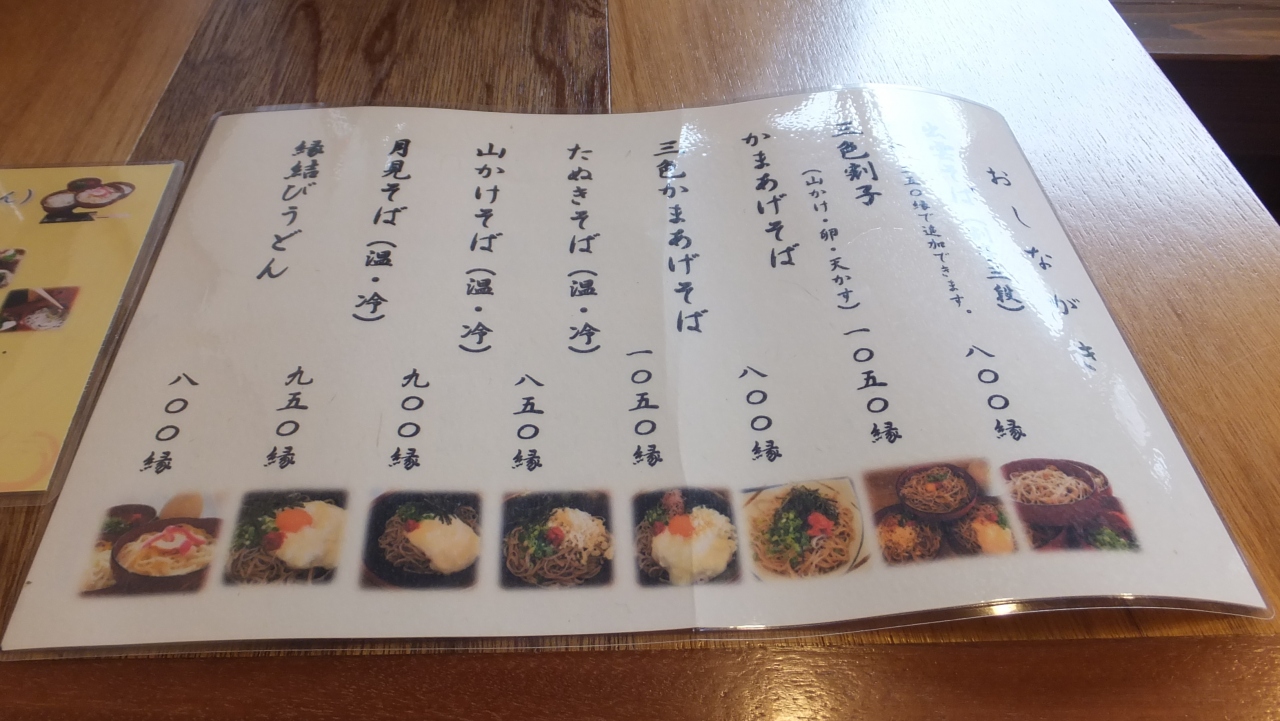 おしながき
三段)
八〇〇縁
五〇縁で追加できます。
三色割子
(山かけ・卵・天かす)
一〇五〇縁
かまあげそば
八〇〇縁
三色かまあげそば
一〇五〇縁
たぬきそば(温・冷)
八五〇縁
山かけそば(温・冷)
九〇〇縁
月見そば(温・冷)
九五〇縁
縁結びうどん
八〇〇縁
ん)